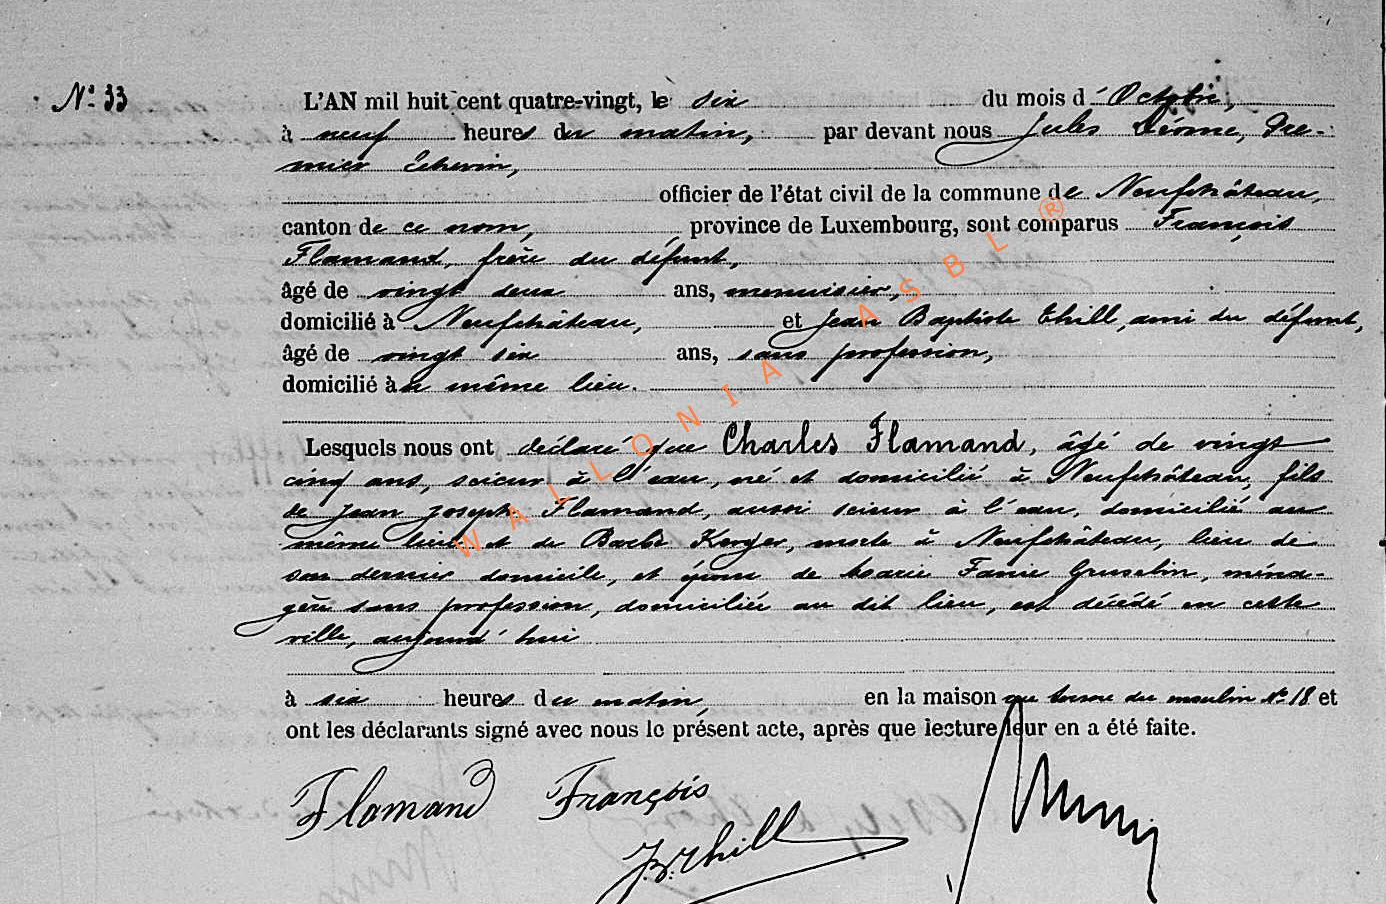 N° 33
L'AN mil huit cent quatre-vingt, le six du mois d'Octobre,
à neuf heures du matin, par devant nous Jules Dérome, Pre-
mier Echevin,
officier de l'état civil de la commune de Neufchâteau,
canton de ce nom, province de Luxembourg, sont comparus François
Flamand, frère du défunt,
âgé de vingt deux ans, menuisier,
domicilié à Neufchâteau, et Jean Baptiste Thill, ami du défunt,
âgé de vingt six ans, sans profession,
domicilié au même lieu.
Lesquels nous ont déclaré que Charles Flamand, âgé de vingt
cinq ans, scieur à l'eau, né et domicilié à Neufchâteau, fils
de Jean Joseph Flamand, aussi scieur à l'eau, domicilié au
même lieu et de Barbe Kerger, morte à Neufchâteau, lieu de
son dernier domicile, et époux de Marie Fanie Gruselin, ména-
gère sans profession, domiciliée au dit lieu, est décédé en cette
ville, aujourd'hui
à six heures du matin, en la maison rue du moulin N° 18 et
ont les déclarants signé avec nous le présent acte, après que lecture leur en a été faite.
Flamand François
J.B. Thill
WALLONIA ASBL ®